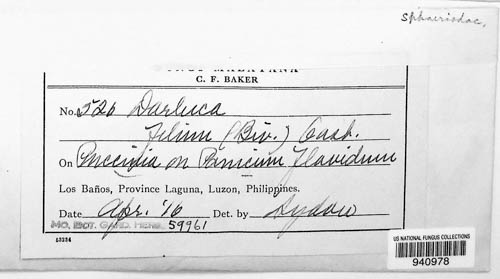 Sphaeriodac.
FUNGI MALAYANA
C. F. BAKER
No. 526 Darluca
Filum (Biv.) Cast.
On Puccinia on Panicum flavidum
Los Baños, Province Laguna, Luzon, Philippines.
Date Apr. '16 Det. by Sydow
MO. BOT. GARD. HERB. 59961
53324
US NATIONAL FUNGUS COLLECTIONS
940978